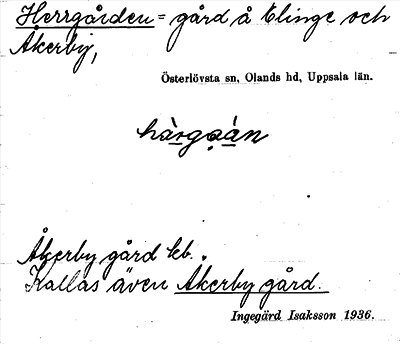 Herrgården = gård å Elinge och
Åkerby,
Österlövsta sn, Olands hd, Uppsala län.
hàrgạán
Åkerby gård kb.
Kallas även Åkerby gård.
Ingegärd Isaksson 1936.